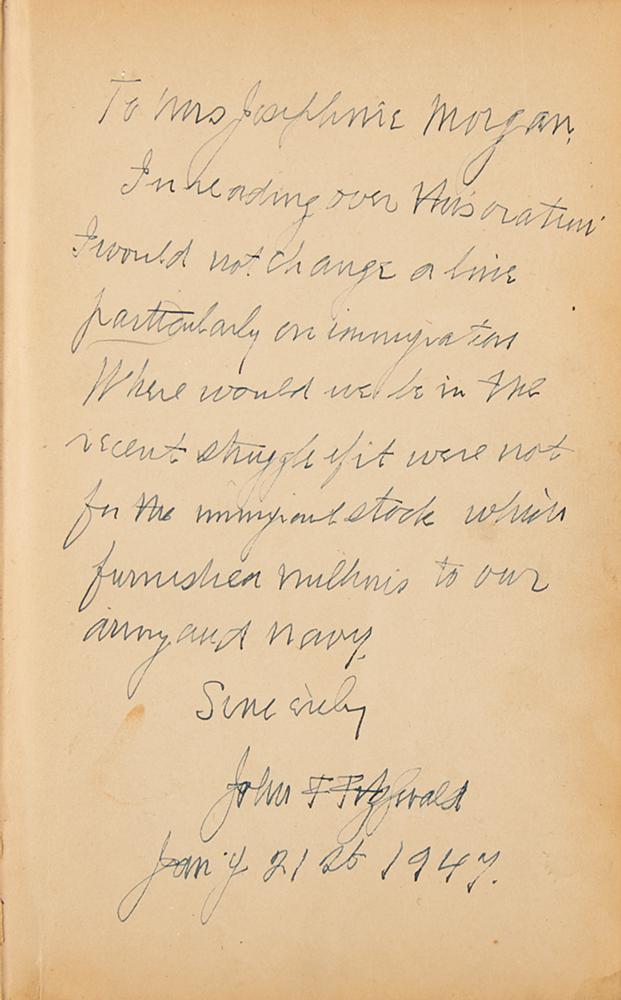 To Mrs Josephine Morgan.
In reading over this oration
I would not change a line
particularly on immigration
Where would we be in the
recent struggle if it were not
for the immigrant stock which
furnished millions to our
army and navy.
Sincerely
John F Fitzgerald
Jan'y 21st 1947.